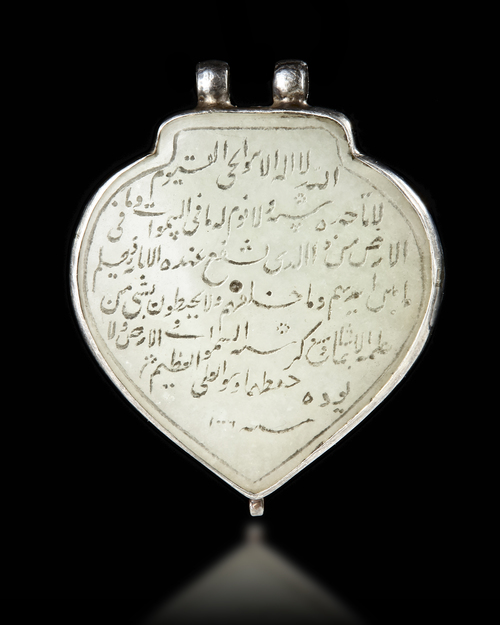 الله لا اله الا هو الحی القیوم
لا تاخذه سنة ولا نوم له ما فی السموات وما فی
الارض من ذا الذی یشفع عنده الا باذنه یعلم
ما بین ایدیهم وما خلفهم ولا یحیطون بشی من
علمه الا بما شا وسع کرسیه السموات والارض ولا
یوده حفظهما وهو العلی العظیم
سنه